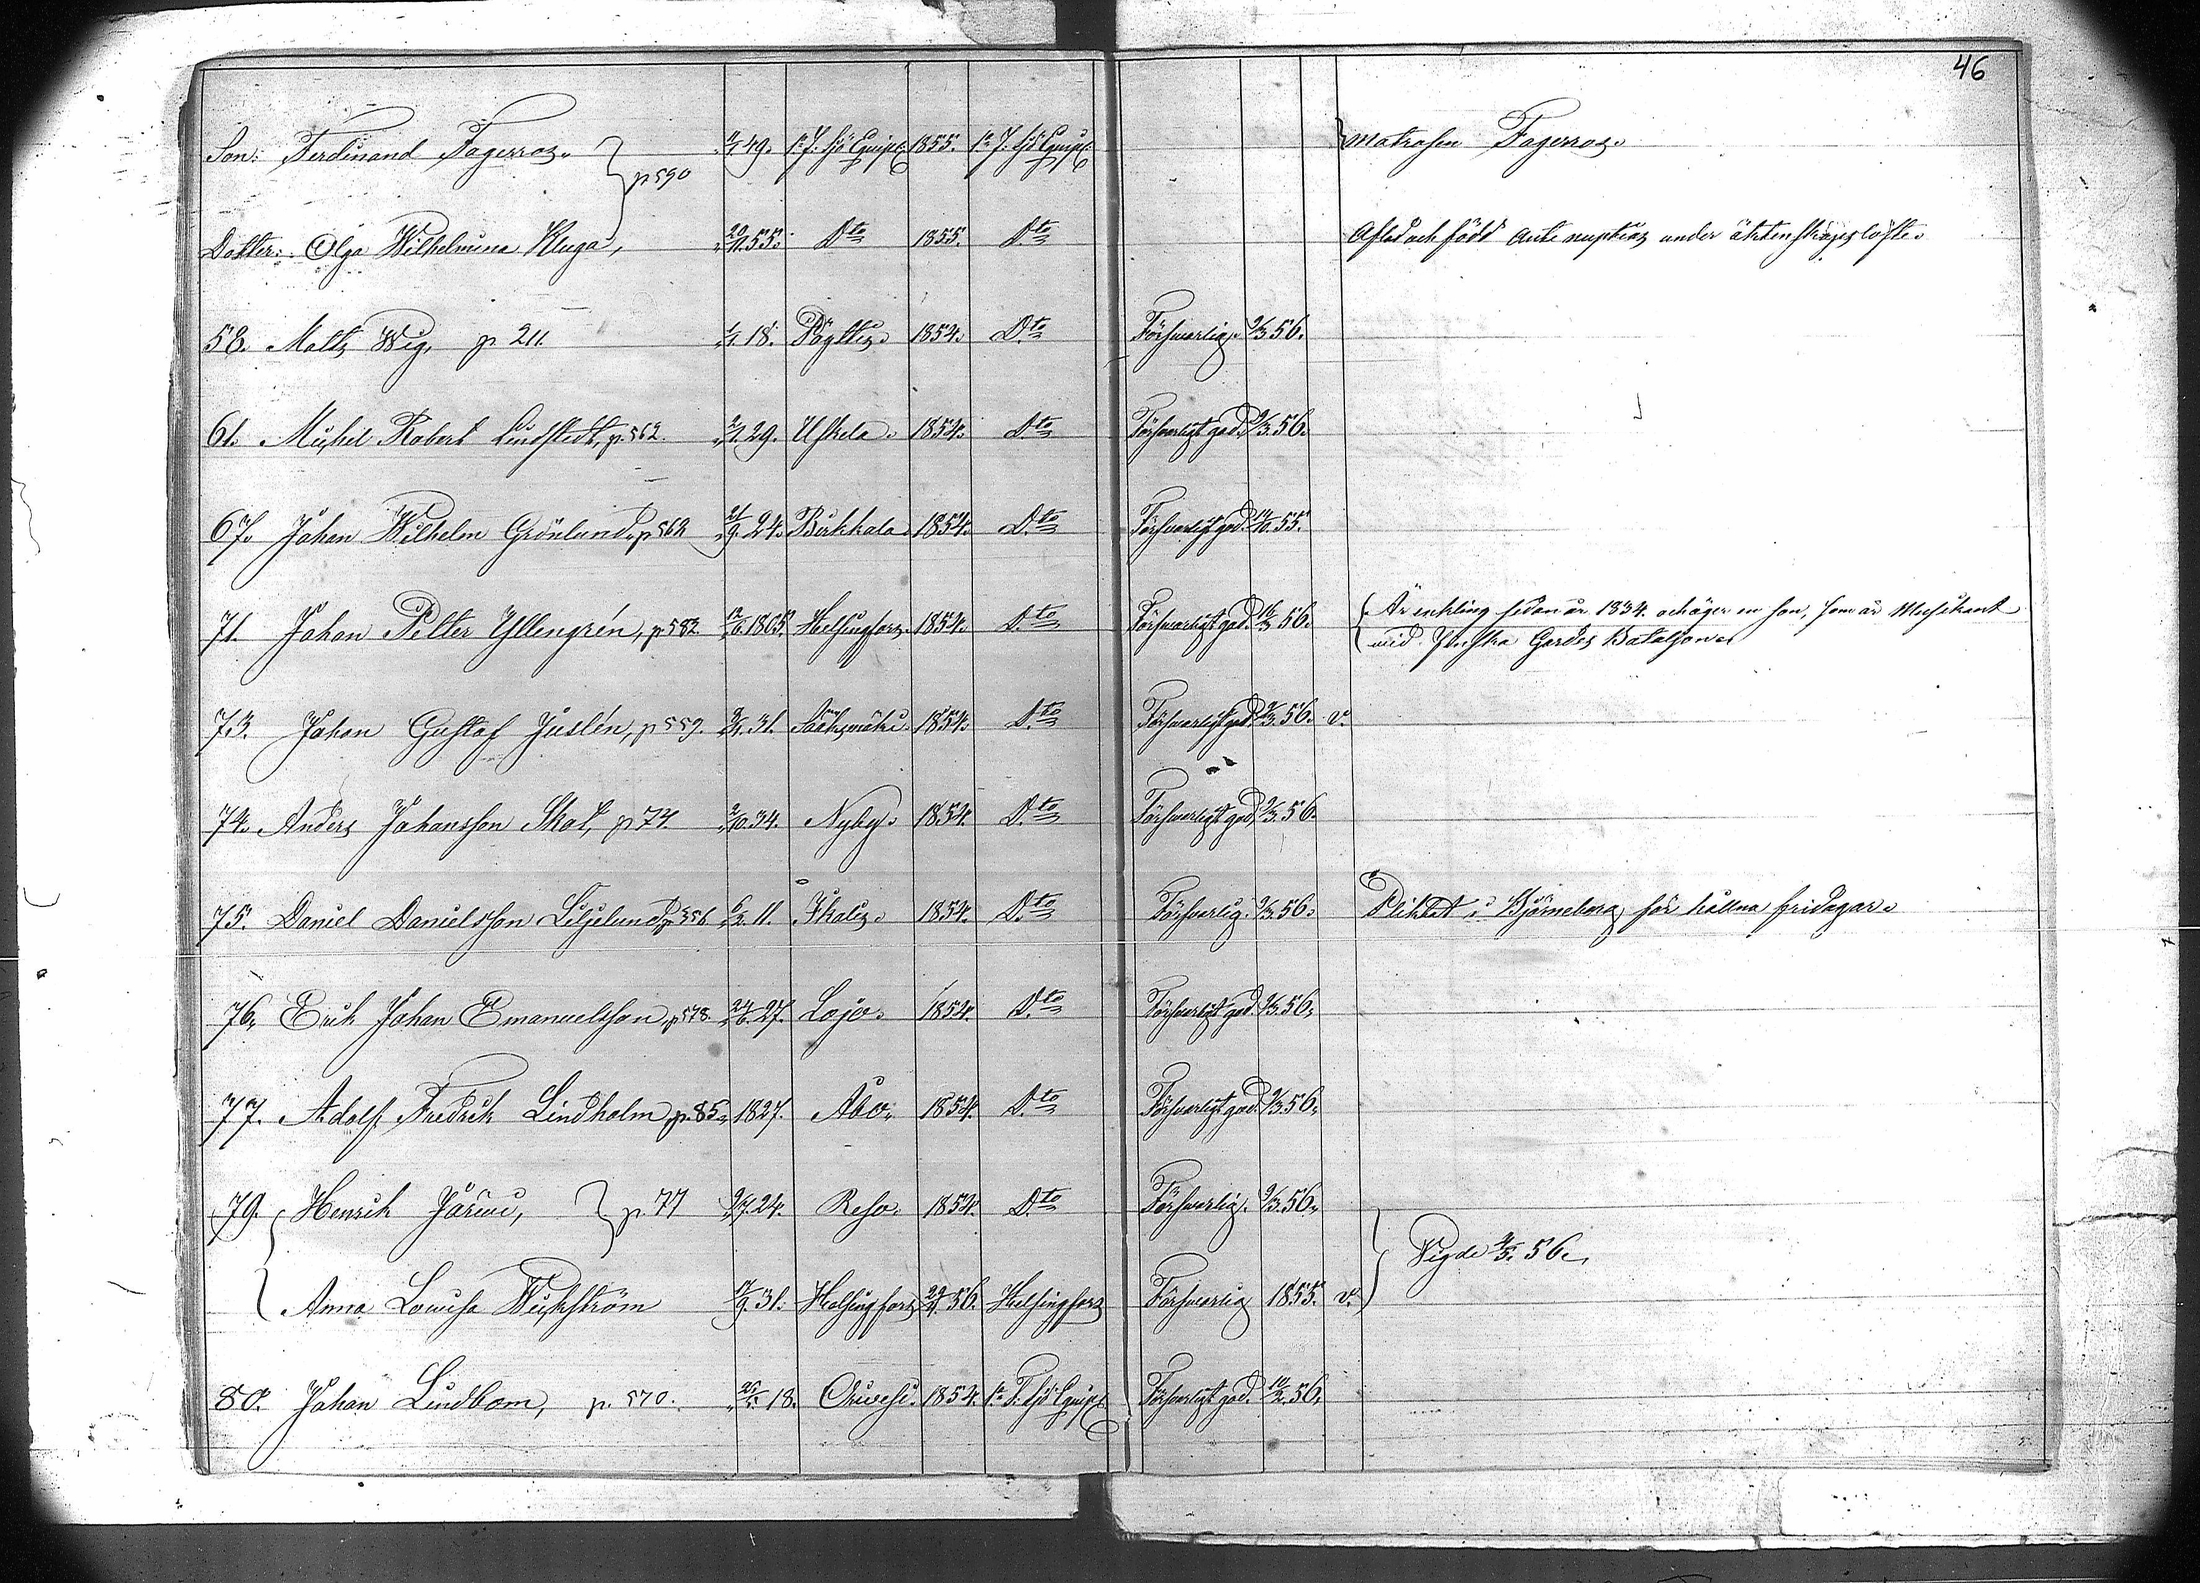 46
Son: Ferdinand Fagerroos. p 590 49. 1:a F. Sjö Equip: 1855. 1:a F. Sjö Equip: Matrosen Fagerroos.
Dotter: Olga Wilhelmina Kluga, 20/1. 55. Dto 1855. Dto Aflad och född ante nuptias under äktenskapslöfte.
58. Matts Wig, p 211 18. Pöyttis. 1854. Dto Försvarlig. 9/3 56.
61. Michel Robert Lindstedt, p. 562. 29. Uskela. 1854. Dto Försvarligt god. 9/3. 56.
67. Johan Wilhelm Grönlund, p 562 21/9. 24. Birkkala. 1854. Dto Försvarligt god. 14/10. 55.
71. Johan Petter Yllengrén, p 582. 12/6. 1805. Helsingfors. 1854. Dto Försvarligt god. 16/3 56. Är enkling sedan år 1834. och äger en son, som är Musikant
vid Finska Gardes Bataljonen
73. Johan Gustaf Juslén, p 559. 31. Sääksmäki. 1854. Dto Försvarligt god. 9/3. 56. v.
74. Anders Johansson Skot, p 74. 2/10. 34. Nyby. 1854. Dto Försvarligt god. 9/3. 56.
75. Daniel Danielsson Liljelund, p. 556 11. Ikalis. 1854. Dto Försvarlig. 9/3. 56. Pliktat i Björneborg för hållna fridagar.
76. Erik Johan Emanuelsson, p 578. 24/6. 27. Lojo. 1854. Dto Försvarligt god. 9/3. 56.
77. Adolf Fredrik Lindholm, p. 85. 1827. Åbo. 1854. Dto Försvarligt god. 9/3. 56.
79. Henrik Järvi, p. 77 24. Reso. 1854. Dto Försvarlig. 9/3. 56.
Vigde 4/5. 56.
Anna Lovisa Wickström 17/9. 31. Helsingfors 29/4. 56. Helsingfors Försvarlig 1855. v.
80. Johan Lindbom, p. 570. 18. Orivesi. 1854. 1:a F. Sjö Equip: Försvarligt god. 10/2. 56.